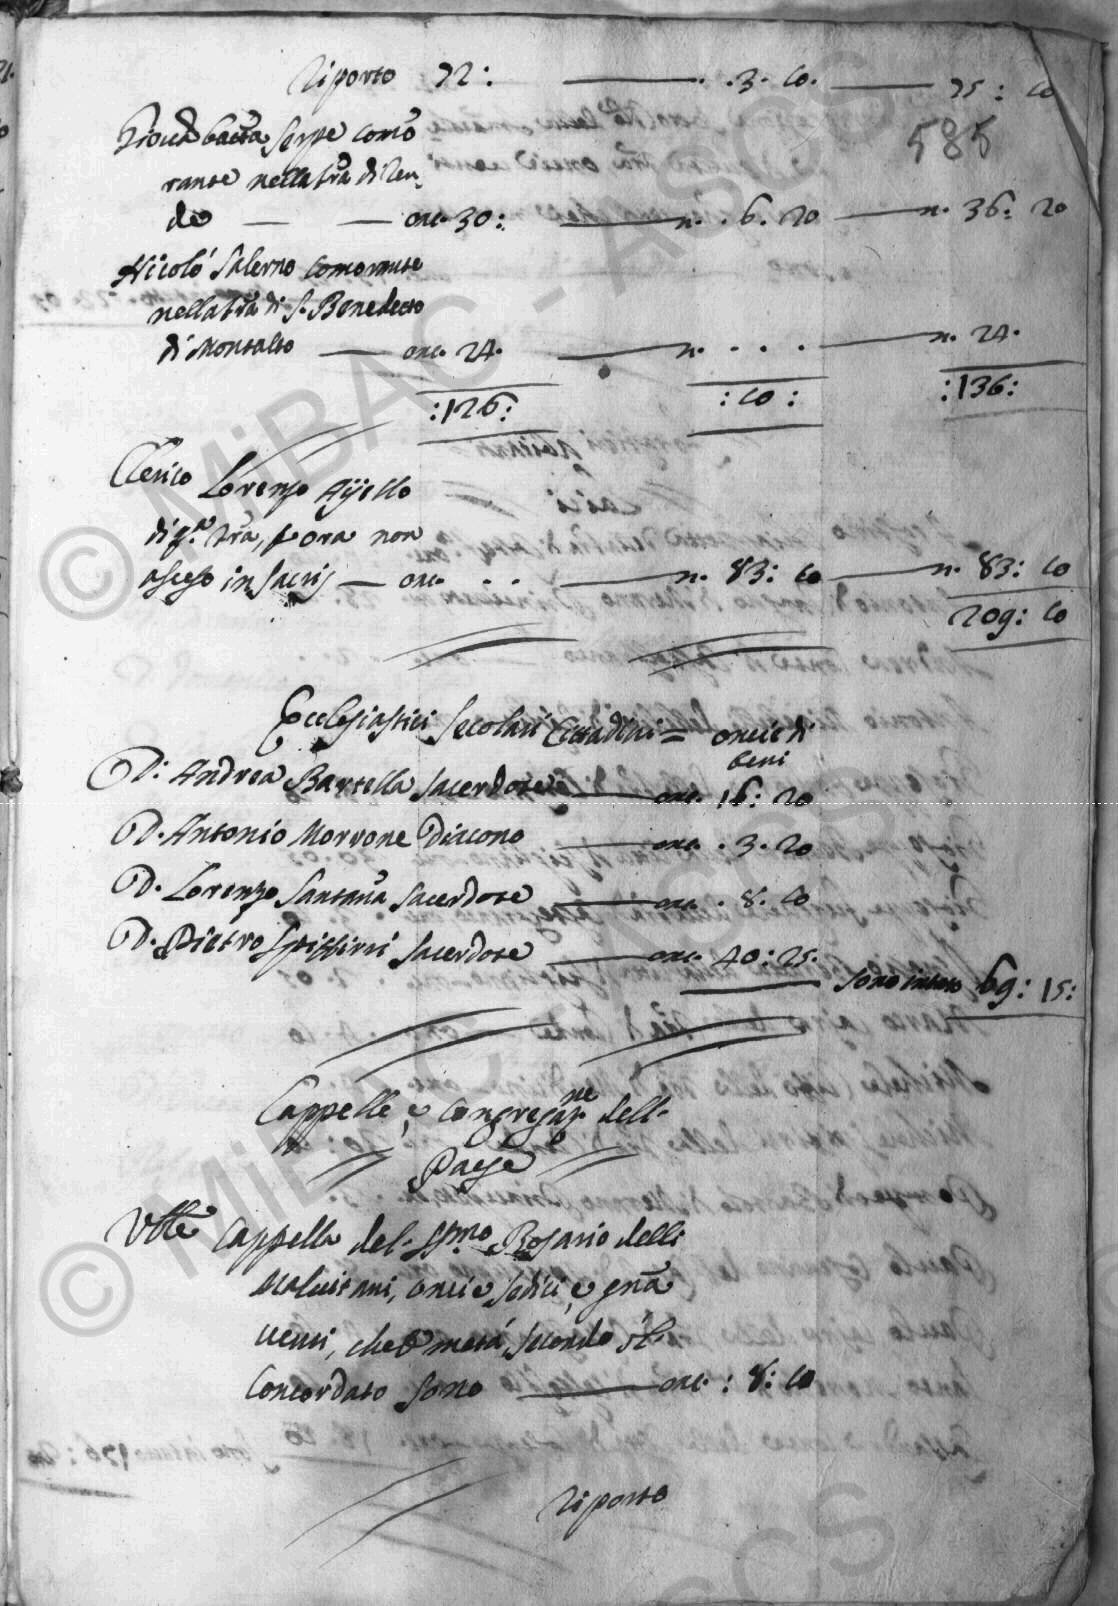 Riporto 72: — . 3. 10. — 75: 10
585
Batta Serpe como
rante nella trã di Ren
de — — onc. 30: — n. . 6. 20 — n. 36: 20
Nicolò Salerno comorante
nella trã di S. Benedetto
di Montalto — onc. 24. — n. . . . — n. 24.
:126: :10: :136:
Clerico Lorenzo Ajello
di q.a trã, p ora non
asceso in sacris — onc. . . — n. 83: 10 — n. 83: 10
209: 10
Ecclesiastici Secolari Cittadini = oncie di
beni
D: Andrea Bartella Sacerdote — onc. 16: 20
D. Antonio Morrone Diacono — onc. . 3. 20
D. Lorenzo Santaña Sacerdote — onc. . 8. 10
D. Pietro Spizzirri Sacerdote — onc. 40: 25.
Sono in tutto 69: 15:
Cappelle, e Congregaz.ne dell.
Paese
Vñle Cappella del SS.mo Rosario delli
Malvitani, oncie sedici, e gñã
venti, che p metà, secondo il
Concordato sono — onc. : 8: 10
Riporto
© MiBAC - ASCS
© MiBAC - ASCS
ASCS